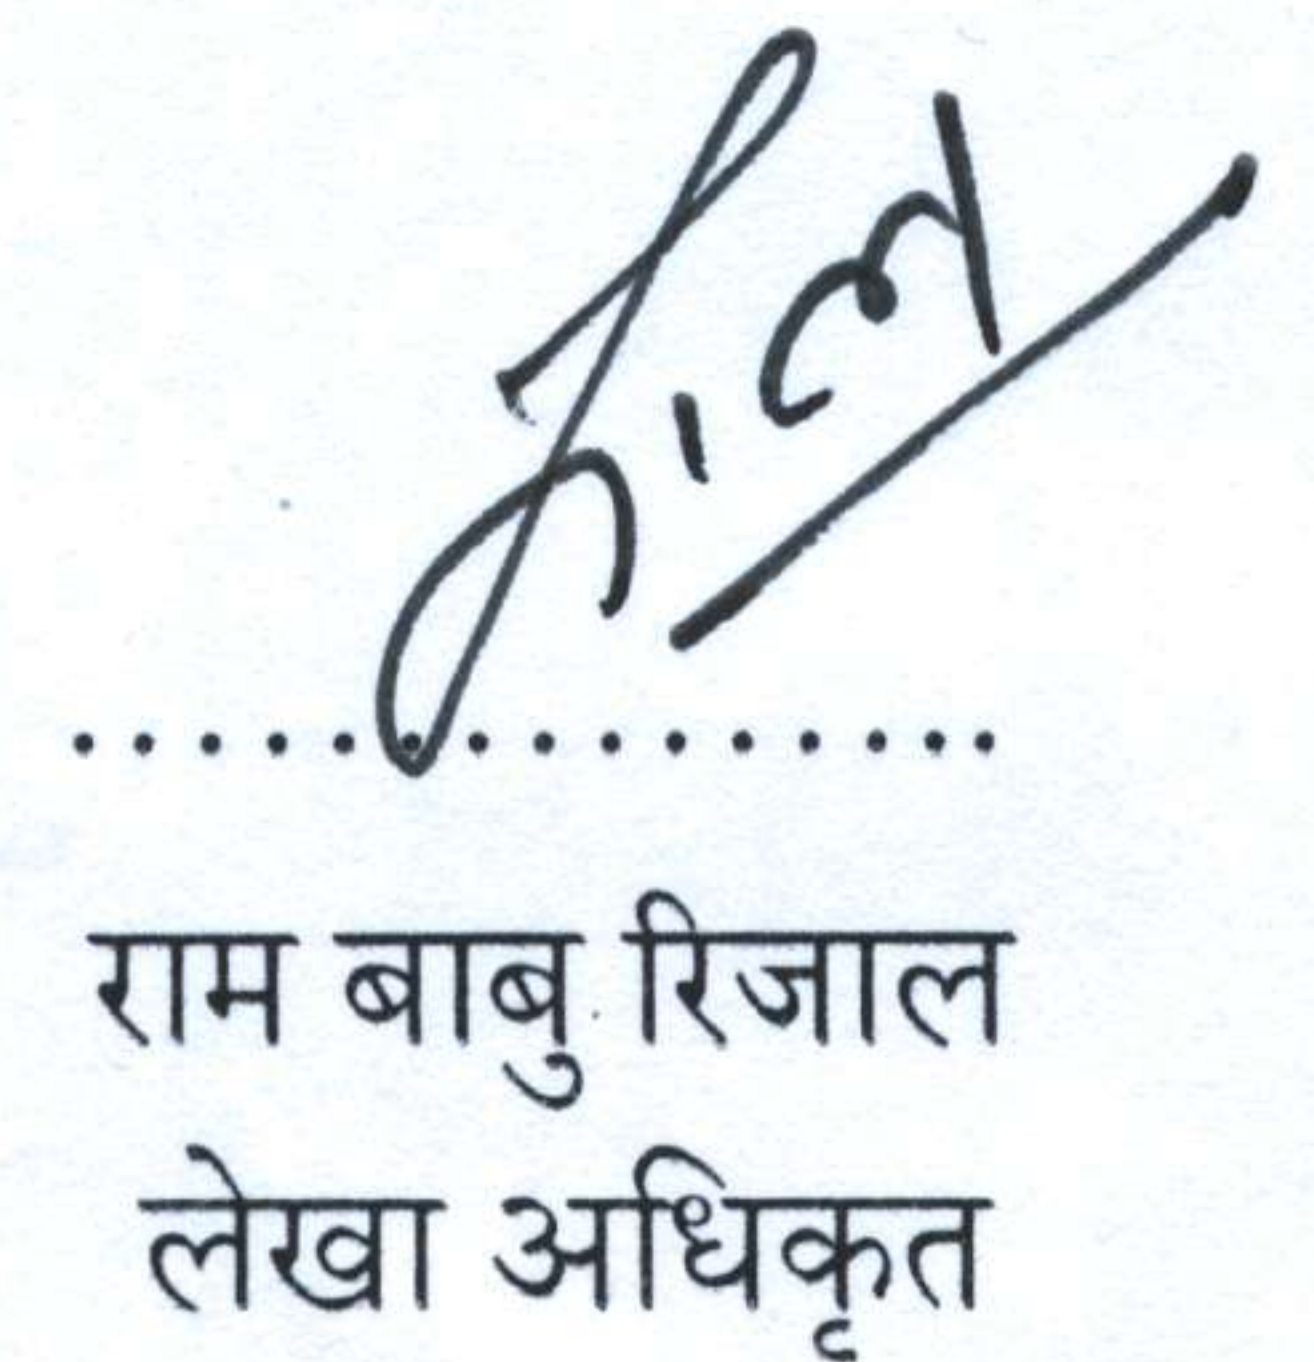 ................
राम बाबु रिजाल
लेखा अधिकृत